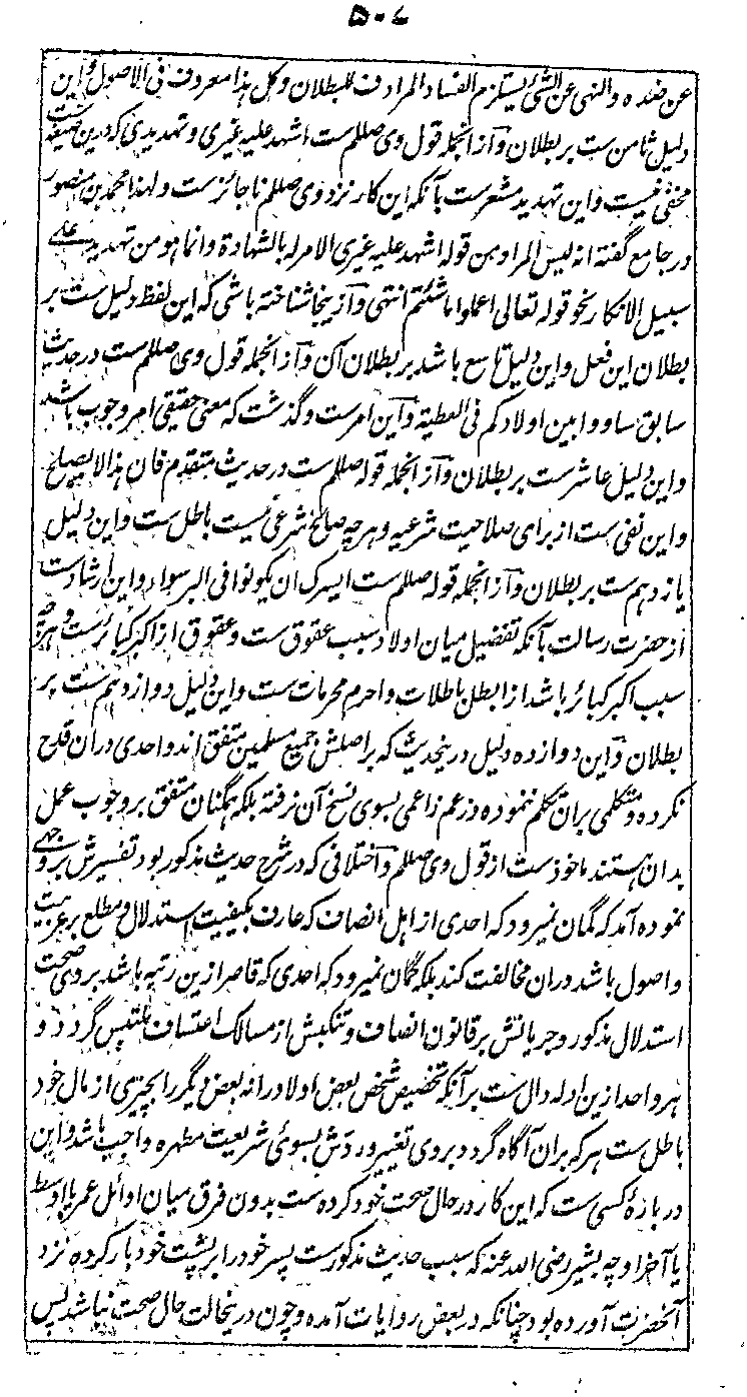 ۵۰۷
عن ضده والنهی عن الشئ یستلزم الفساد المرادف للبطلان وکل هذا معروف فی الاصول واین
دلیل ثامن ست بر بطلان و از انجمله قول وی صلعم ست اشهد علیه غیری و تهدیدی که درین صیغه است
مخفی نیست و این تهدید مشعر ست بآنکه این کار نزد وی صلعم ناجائز ست ولهذا محمد بن منصور
در جامع گفته انه لیس المراد من قوله اشهد علیه غیری الامر له بالشهادة وانما هو من تهدید علی
سبیل الانکار نحو قوله تعالی اعملوا ما شئتم انتهی و ازینجا شناخته باشی که این لفظ دلیل ست بر
بطلان این فعل و این دلیل تاسع باشد بر بطلان آن و از انجمله قول وی صلعم ست در حدیث
سابق ساووا بین اولادکم فی العطیة و این امر ست و گذشت که معنی حقیقی امر وجوب باشد
و این دلیل عاشر ست بر بطلان و از انجمله قوله صلعم ست در حدیث متقدم فان هذا لا یصلح
و این نفی ست از برای صلاحیت شرعیه و هر چه صالح شرعی نیست باطل ست و این دلیل
یازدهم ست بر بطلان و از انجمله قوله صلعم ست ایسرک ان یکونوا فی البر سواء و این ارشاد ست
از حضرت رسالت بآنکه تفضیل میان اولاد سبب عقوق ست و عقوق از اکبر کبائر ست و هر چه
سبب اکبر کبائر باشد از ابطل باطلات و احرم محرمات ست و این دلیل دوازدهم ست بر
بطلان و این دوازده دلیل درینحدیث که بر اصلش جمیع مسلمین متفق اند و احدی دران قدح
نکرده و متکلمی بران تکلم ننموده و زعم زاعمی بسوی نسخ آن نرفته بلکه همگنان متفق بر وجوب عمل
بدان هستند ماخوذ ست از قول وی صلعم و اختلافی که در شرح حدیث مذکور بود تفسیرش بر وجهی
نموده آمد که گمان نمیرود که احدی از اهل انصاف که عارف بکیفیت استدلال و مطلع بر عربیت
و اصول باشد دران مخالفت کند بلکه گمان نمیرود که احدی که قاصر ازین رتبه باشد بر وی صحت
استدلال مذکور و جریانش بر قانون انصاف و تنکبش از مسالک اعتساف ملتبس گردد و
هر واحد ازین ادله دال ست بر آنکه تخصیص شخص بعض اولاد را نه بعض دیگر را بچیزی از مال خود
باطل ست هر که بران آگاه گردد بروی تغییر و ردش بسوی شریعت مطهره واجب باشد و این
در بارهٔ کسی ست که این کار در حال صحت خود کرده ست بدون فرق میان اوائل عمر یا اوسط
یا آخر او چه بشیر رضی الله عنه که سبب حدیث مذکور ست پسر خود را بر پشت خود بار کرده نزد
آنحضرت آورده بود چنانکه در بعض روایات آمده و چون درینحالت حال صحت نباشد پس